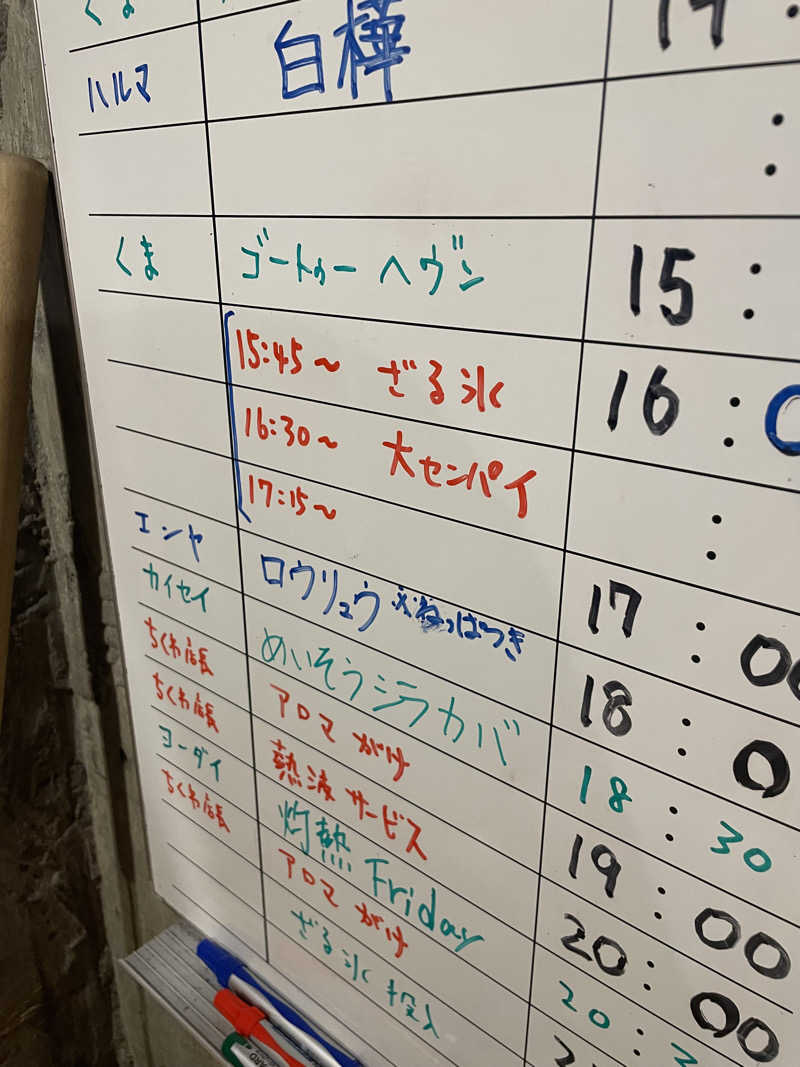 くま
ハルマ 白樺
:
くま ゴートゥー ヘヴン 15:
15:45～ ざる氷 16:0
16:30～ 大センパイ :
17:15～
エンヤ ロウリュウ ※ねっぱつき 17:00
カイセイ めいそうシラカバ 18:0
ちくわ店長 アロマがけ 18:30
ちくわ店長 熱波サービス 19:00
ヨーダイ 灼熱Friday 20:00
ちくわ店長 アロマがけ 20:3
ざる氷投入